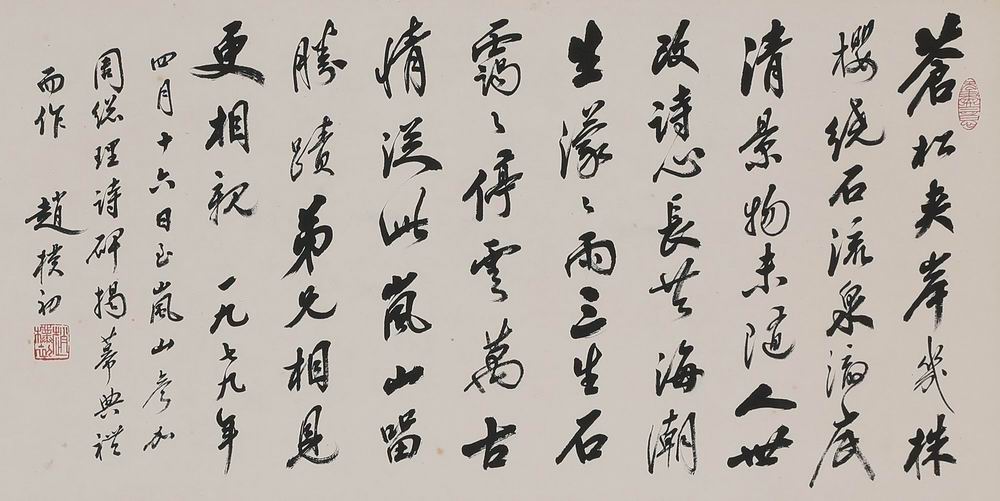 蒼松夹岸幾株
櫻绕石流泉澈底
清景物未随人世
改詩心長共海潮
生濛〻雨三生石
靄〻停雲萬古
情從此嵐山留
勝蹟弟兄相見
更相親 一九七九年
四月十六日至嵐山參加
周總理詩碑揭幕典禮
而作 趙樸初
趙樸初